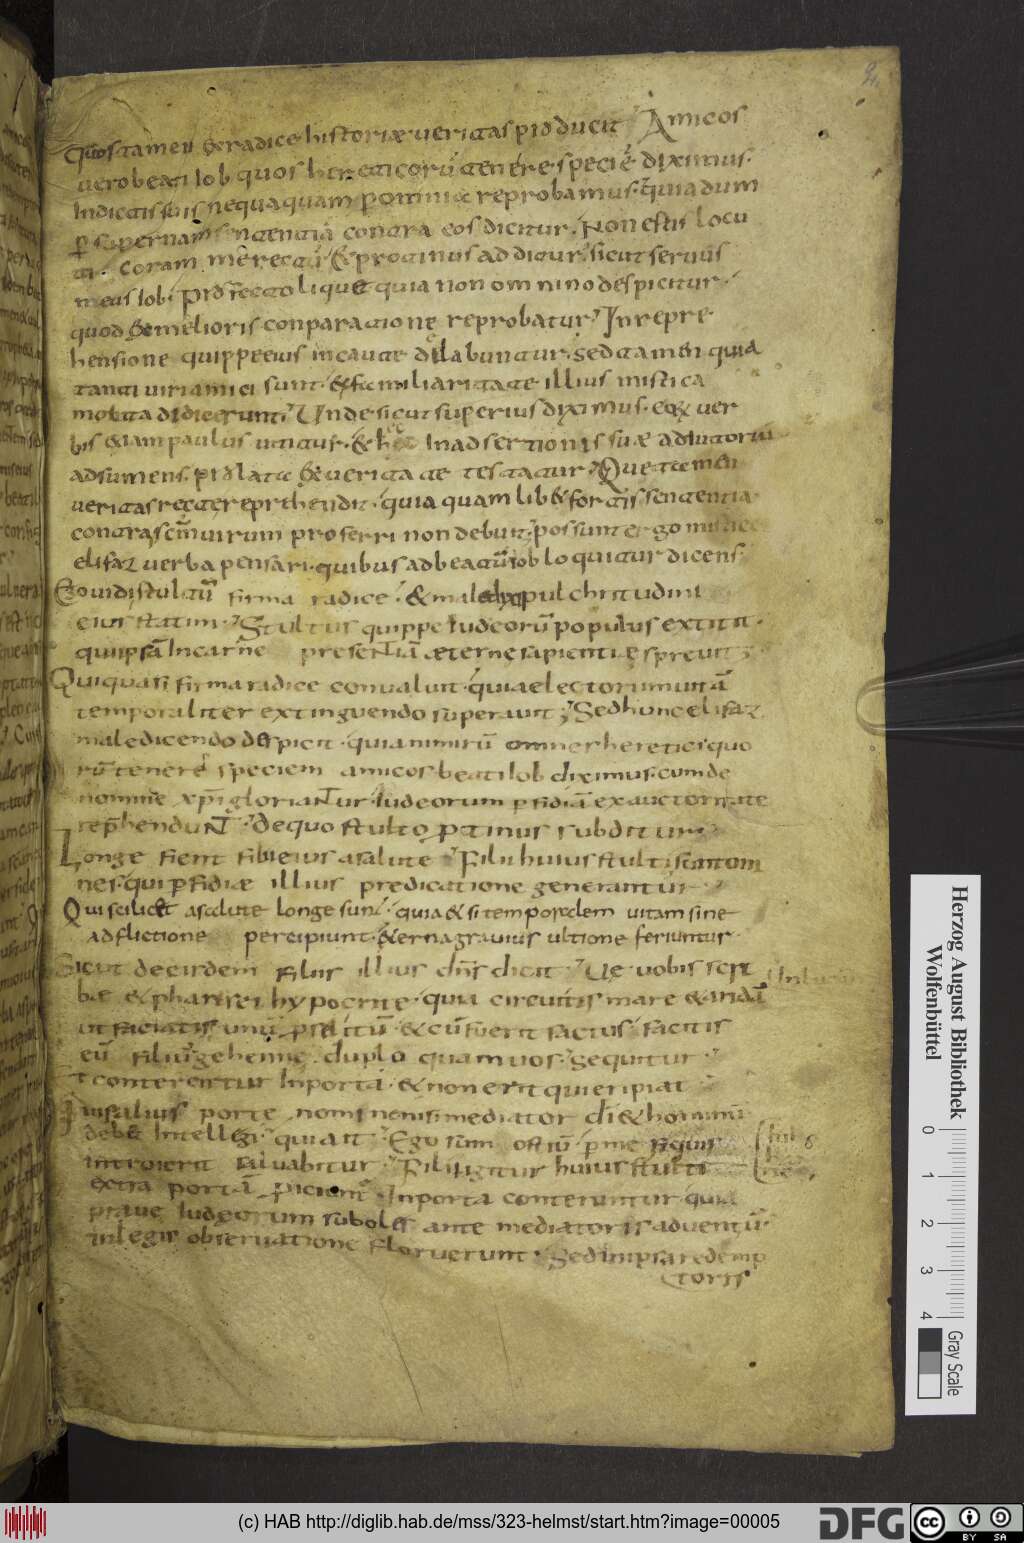 2.
quos tamen & radice historiæ ueritas producit Amicos
uero beati Iob quos hereticorū tenere speciē diximus.
Indictis suis nequaquam Domini reprobamus. quia dum
ꝑ supernam sententiā contra eos dicitur. Non estis locu
ti coram me rectū & protinus additur sicut seruus
meus Iob. pro recto liquet quia non omnino despicitur.
quod & melioris conparatione reprobatur. Inrepre
hensione quippe eius incaute dilabuntur. sed tamen quia
tanti uiri amici sunt. & familiaritate illius mistica
multa didicerunt. Unde sicut superius diximus. eoꝝ uer
bis &iam paulus utitur. & hęc Inadsertionis suæ adiutoriū
adsumens. prolata & ueritate testatur. Que tamen
ueritas recte reprehendit. quia quamlib& fortis sententia
contra scm̄ uirum proferri non debuit. possunt ergo mistice
elifaz uerba pensari. quibus ad beatū iob loquitur dicens.
Ego uidi stultū firma radice. & maledixi pulchritudini
eius statim. Stultus quippe Iudeorū populus extitit.
qui ipsā Incarne presentiā æterne sapientię spreuit;
Qui quasi firma radice conualuit. quia electorum uitā
temporaliter extinguendo superauit; Sed hunc elifaz
maledicendo despicit. quia nimirū omnes heretici quo
rū tenere speciem amicos beati Iob diximus. cum de
nomine xp̄i gloriantur. Iudeorum ꝑfidiā ex auctoritate
rep̄hendunt. de quo stulto ꝓtinus subditur.
Longe fient filii eius a salute. Filii huius stulti sunt om
nes. qui ꝑfidiæ illius predicatione generantur.
Qui scilicet a salute longe sunt. quia & si temporalem uitam sine
adflictione percipiunt. &erna grauius ultione feriuntur.
Sicut de eisdem filiis illius dn̄s dicit. Ue uobis scri
bæ & pharisei hypocrite. quia circuitis mare & aridā
ut faciatis unū proselitū. & cū fuerit factus. facitis
eū filiū gehenne duplo quam uos. sequitur.
Et conterentur Inportā. & non erit qui eripiat
Quis alius porte nomine nisi mediator dī & hominū
deb& Intellegi. qui ait. Ego sum ostiū. ꝑ me si quis
introierit saluabitur. Filii igitur huius stulti
extra portā ꝓficiunt. Inporta conteruntur. quia
praue Iudeorum suboles ante mediatoris aduentū.
inlegis obseruatione floruerunt. Sed in ipsa redemp
toris
Herzog August Bibliothek
Wolfenbüttel
0 1 2 3 4
Gray Scale
(c) HAB http://diglib.hab.de/mss/323-helmst/start.htm?image=00005
DFG
cc BY SA